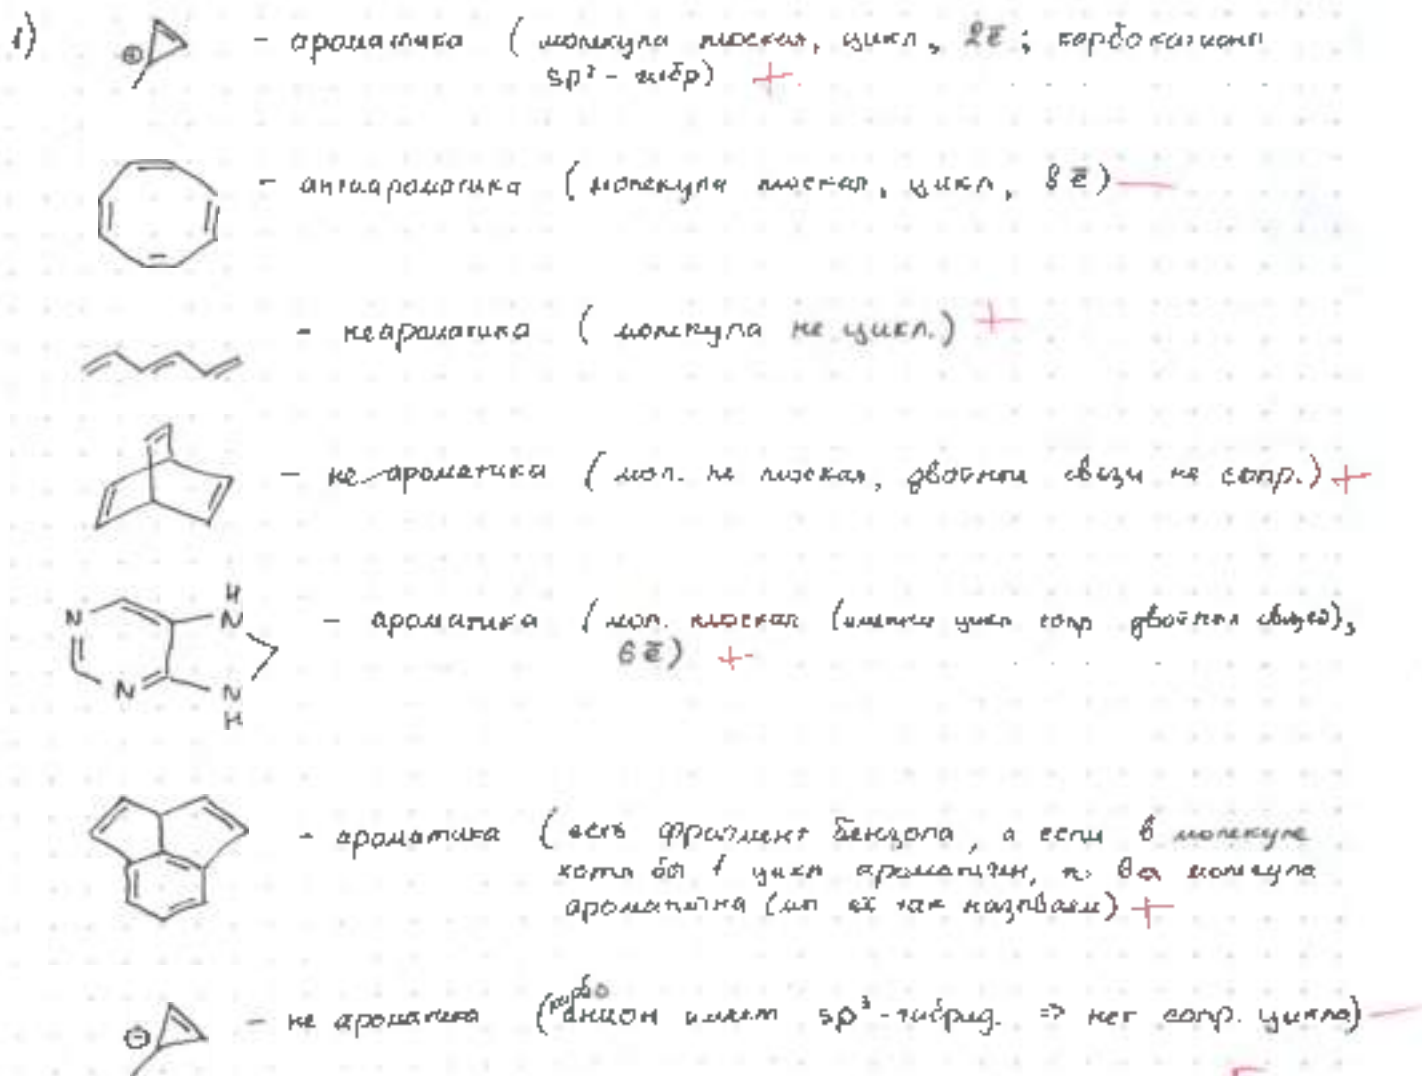 1) ⊕ - ароматика ( молекула плоская, цикл, 2ē ; карбокатион
sp² - гибр) +
- антиароматика ( молекула плоская, цикл, 8 ē ) —
- неароматика ( молекула не цикл. ) +
- не ароматика ( мол. не плоская, двойные связи не сопр. ) +
N H N N N H - ароматика ( мол. плоская ( цикл сопр двойных связей ),
6 ē ) +
- ароматика ( есть фрагмент бензола, а если в молекуле
хотя бы 1 цикл ароматичен, то вся молекула
ароматична ( мы её так называем ) +
⊖ - не ароматика ( карбоанион имеет sp³ - гибрид. => нет сопр. цикла ) —